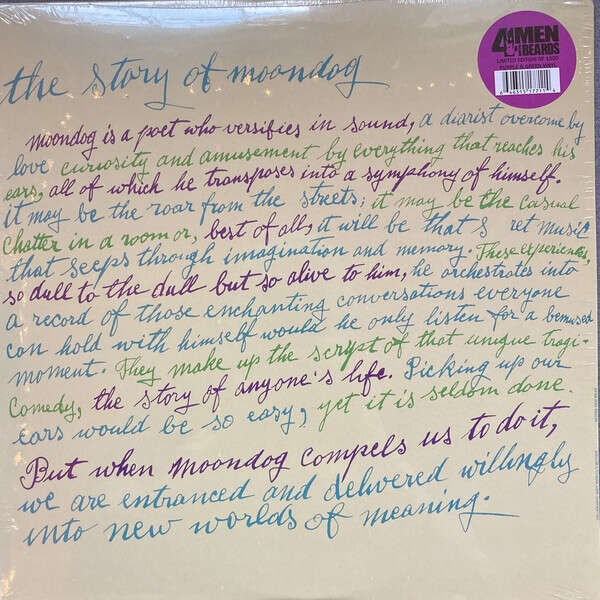 4 MEN
BEARDS
LIMITED EDITION OF 1500
PURPLE & GREEN VINYL
the story of moondog
Moondog is a poet who versifies in sound, a diarist overcome by
love curiosity and amusement by everything that reaches his
ears, all of which he transposes into a symphony of himself.
it may be the roar from the streets; it may be the casual
chatter in a room or, best of all, it will be that s ret music
that seeps through imagination and memory. These experiences,
so dull to the dull but so alive to him, he orchestrates into
a record of those enchanting conversations everyone
can hold with himself would he only listen for a bemused
moment. They make up the script of that unique tragi-
comedy, the story of anyone's life. Picking up our
ears would be so easy, yet it is seldom done.
But when moondog compels us to do it,
we are entranced and delivered willingly
into new worlds of meaning.